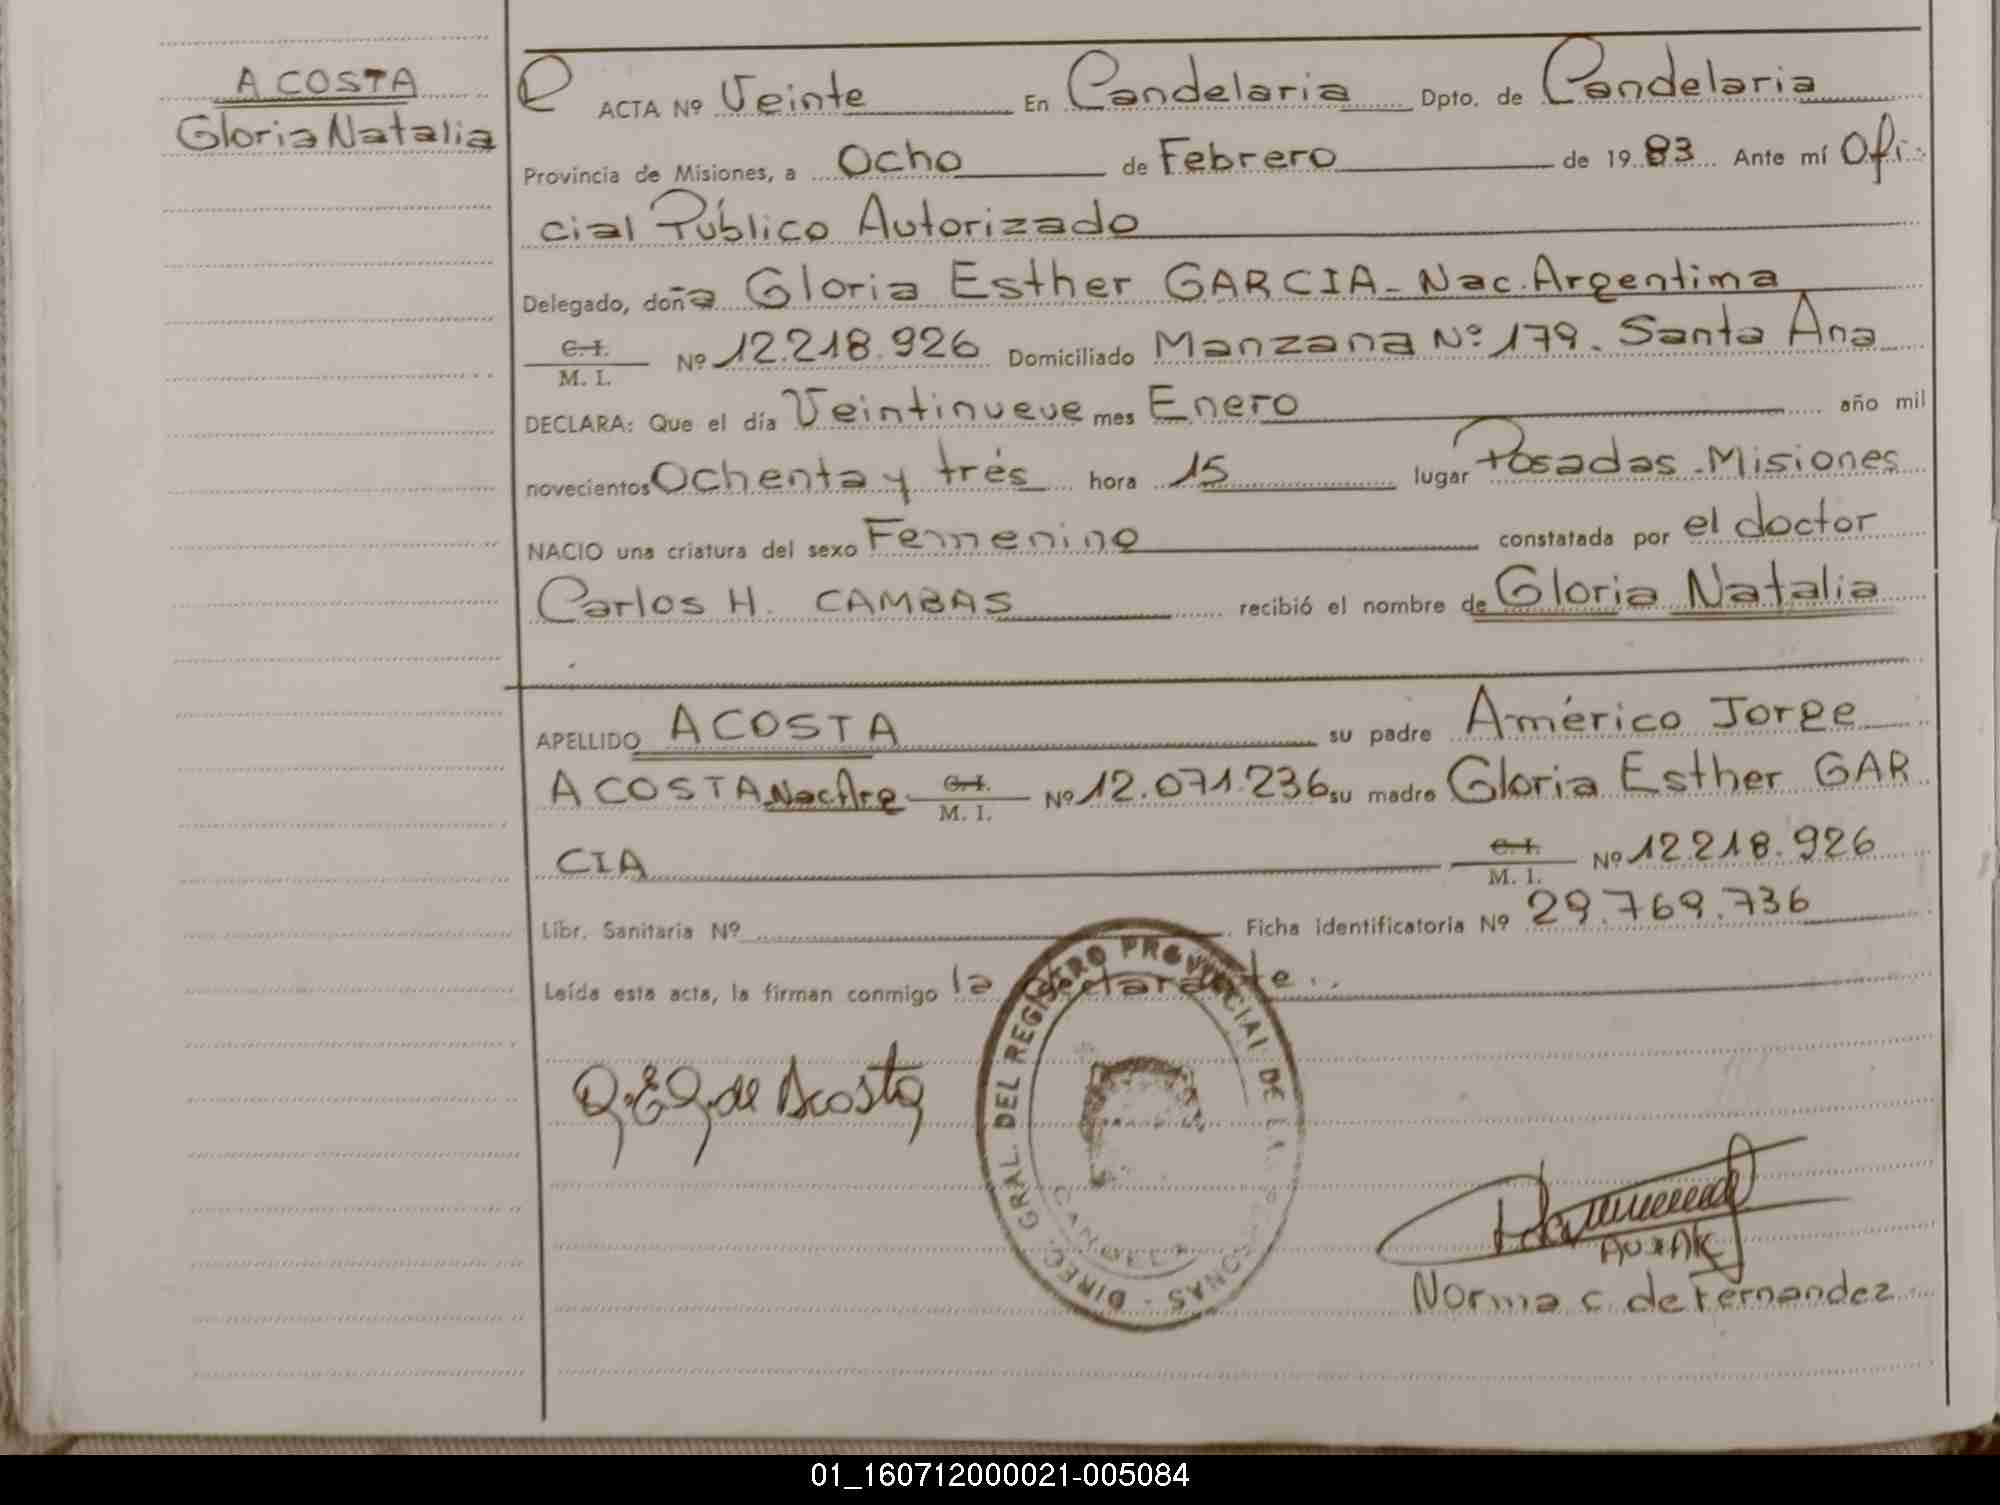 ACOSTA
Gloria Natalia
ACTA Nº Veinte En Candelaria Dpto. de Candelaria
Provincia de Misiones, a Ocho de Febrero de 1983 Ante mí Ofi-
cial Público Autorizado
Delegado, doña Gloria Esther GARCIA - Nac. Argentina
C. I.
M. I. Nº 12.218.926 Domiciliado Manzana Nº 179. Santa Ana
DECLARA: Que el día Veintinueve mes Enero año mil
novecientos Ochenta y trés hora 15 lugar Posadas - Misiones
NACIO una criatura del sexo Femenino constatada por el doctor
Carlos H. CAMBAS recibió el nombre de Gloria Natalia
APELLIDO ACOSTA su padre Américo Jorge
ACOSTA Nac. Arg C. I. M. I. Nº 12.071.236 su madre Gloria Esther GAR
CIA C. I. M. I. Nº 12.218.926
Libr. Sanitaria Nº Ficha identificatoria Nº 29.769.736
Leída esta acta, la firman conmigo la declarante..
G.E.G. de Acosta
DIREC. GRAL. DEL REGISTRO PROVINCIAL DE LAS PERSONAS
Norma C. de Fernandez
01_160712000021-005084